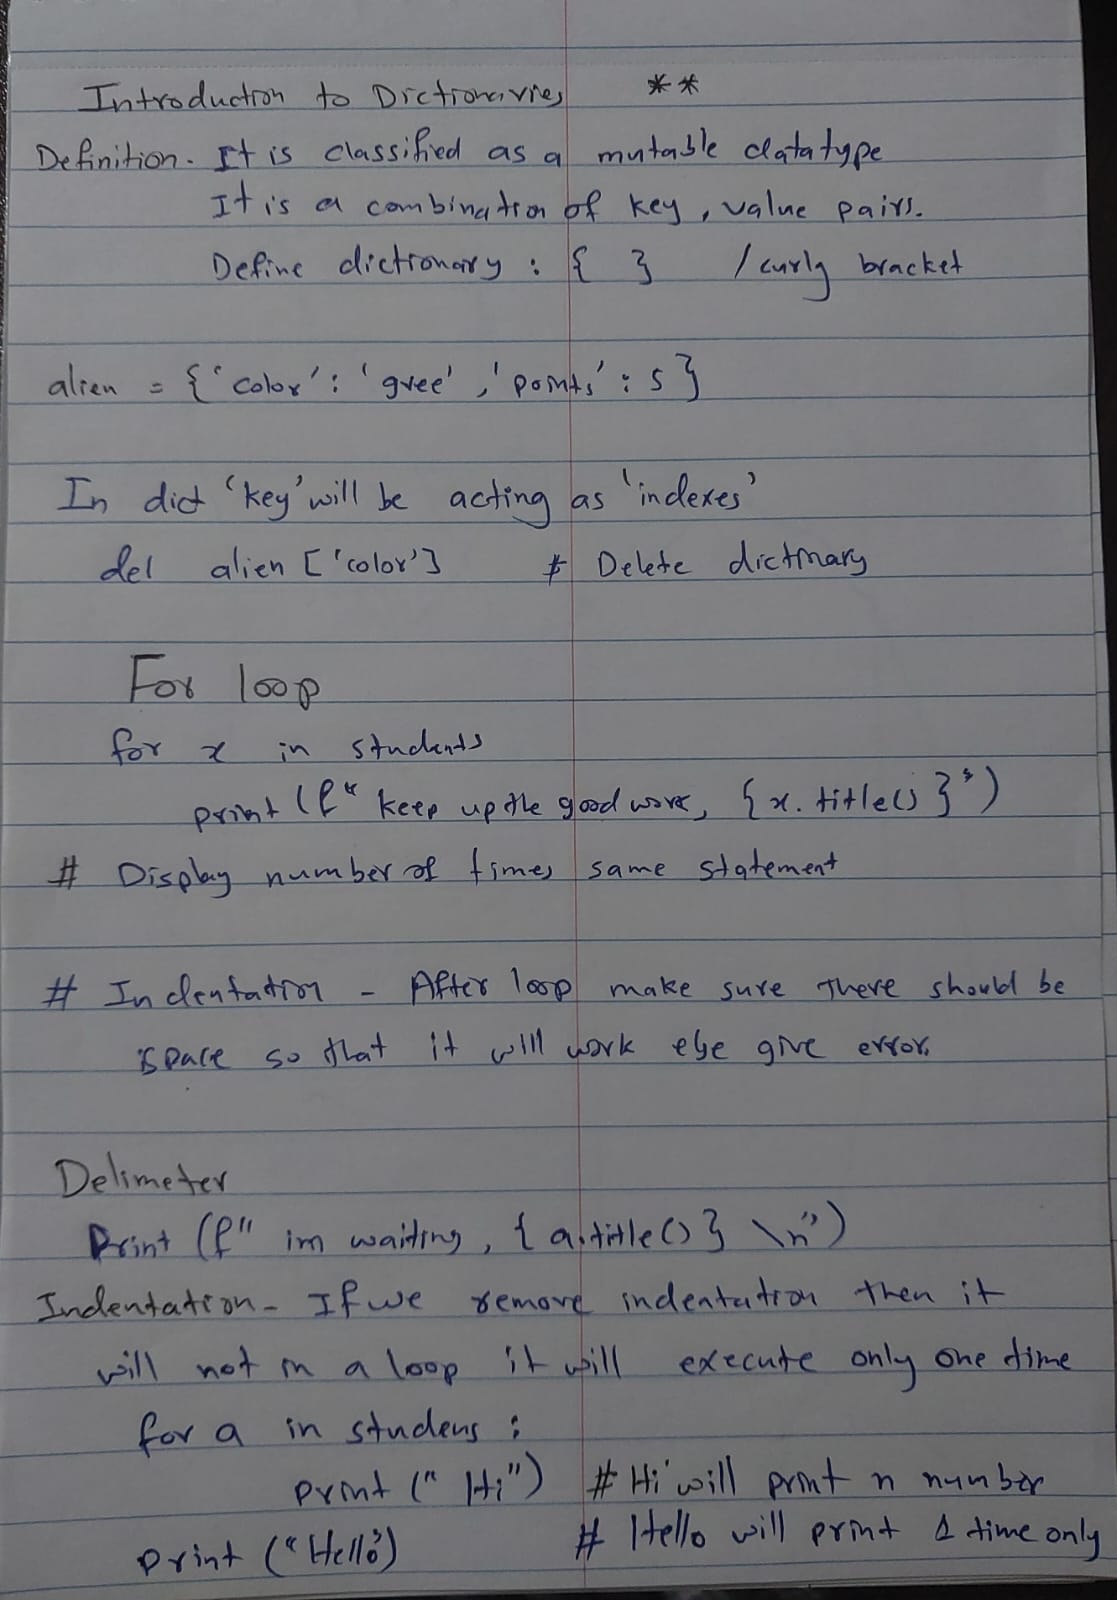 Introduction to Dictionaries **
Definition. It is classified as a mutable datatype
It is a combination of key, value pairs.
Define dictionary : { } / curly bracket
alien = {'color': 'gree' ,'points' : 5}
In dict 'key' will be acting as 'indexes'
del alien ['color'] # Delete dictinary
For loop
for x in students
print (f" keep up the good work, {x.title()}")
# Display number of times same statement
# Indentation - After loop make sure there should be
space so that it will work else give error.
Delimeter
Print (f" im waiting, {a.title()} \n")
Indentation - If we remove indentation then it
will not in a loop it will execute only one time
for a in studens :
print (" Hi") # Hi will print n number
print ("Hello") # Hello will print 1 time only